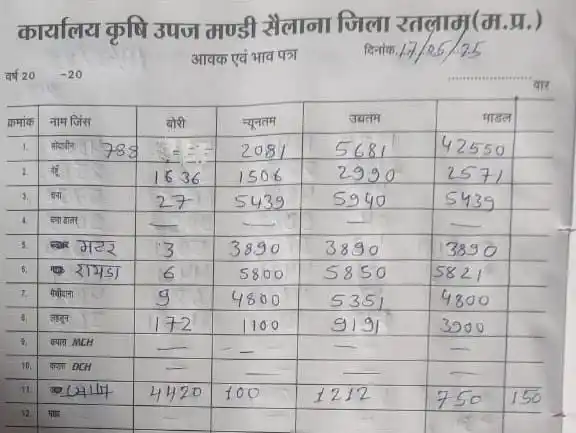 कार्यालय कृषि उपज मण्डी सैलाना जिला रतलाम(म.प्र.)
आवक एवं भाव पत्र
दिनांक. 17/05/25
वर्ष 20 -20
वार
क्रमांक नाम जिंस बोरी न्यूनतम उच्चतम माडल
1. सोयाबीन 788 2081 5681 42550
2. गेहूँ 1636 1506 2990 2571
3. चना 27 5439 5940 5439
4. चना डालर — — — —
5. मटर 3 3890 3890 3890
6. रायडा 6 5800 5850 5821
7. मेथीदाना 9 4800 5351 4800
8. लहसुन 172 1100 9191 3900
9. कपास MCH — — — —
10. कपास DCH — — — —
11. प्याज 4420 100 1212 750 150
12.